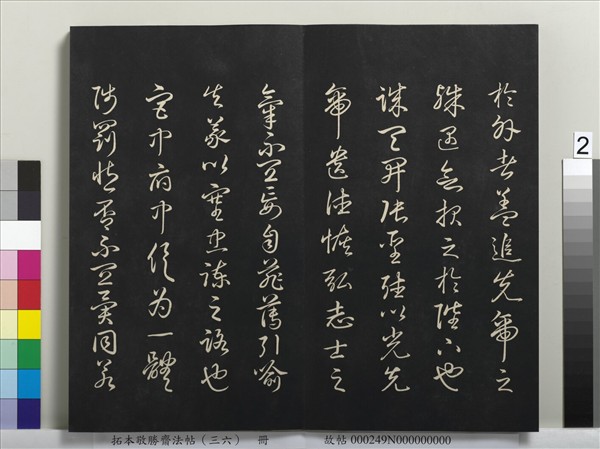 於外者盖追先帝之
殊遇欲报之於陛下也
誠宜開張聖聽以光先
帝遺德恢弘志士之
氣不宜妄自菲薄引喻
失義以塞忠諫之路也
宫中府中俱为一體
陟罰臧否不宜異同若
拓本敬勝齋法帖（三六） 冊 故帖 000249N000000000
2